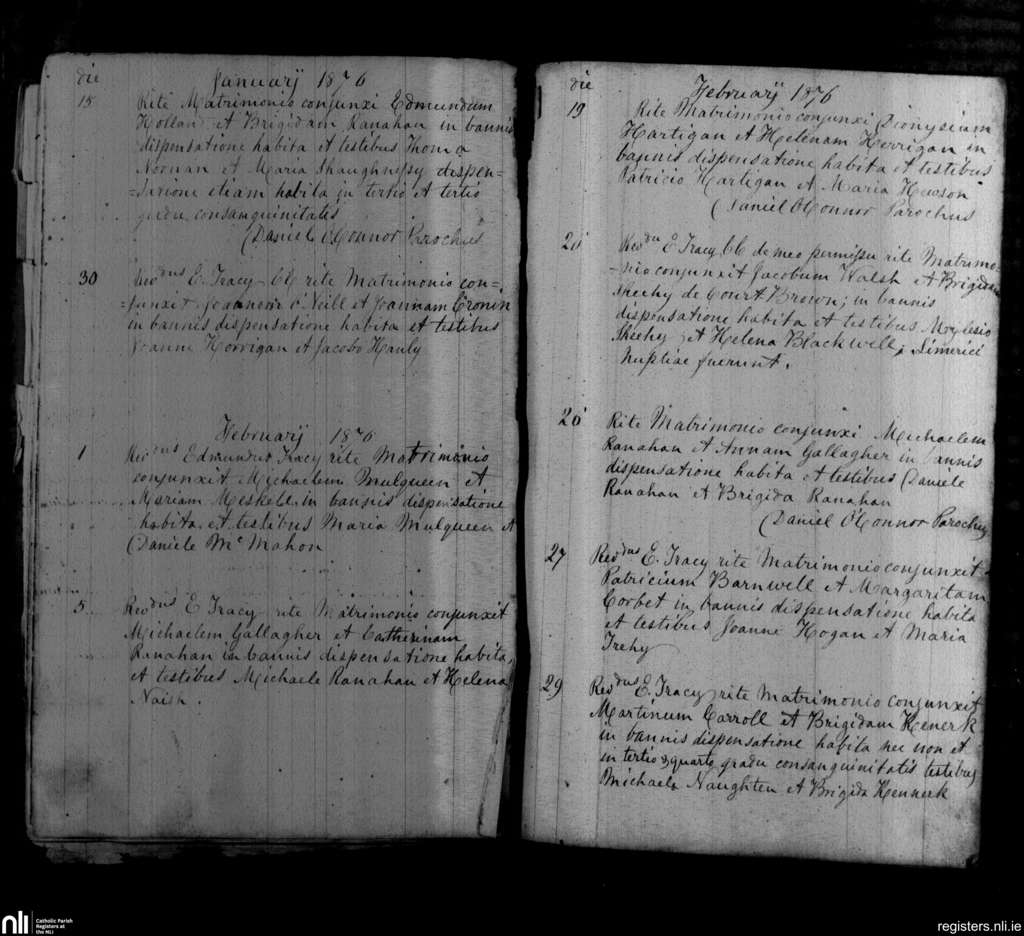 die
Januarij 1876
15 Rite Matrimonio conjunxi Edmundum
Holland et Brigidam Ranahan in bannis
dispensatione habita et testibus Thoma
Noonan et Maria Shaughnessy dispen=
=sirione etiam habita in tertio et tertio
gradu consanguinitatis
Daniel O'Connor Parochus
30 Revdus E. Tracy CC rite Matrimonio con=
=junxit Joannem O'Neill et Joannam Cronin
in bannis dispensatione habita et testibus
Joanne Horrigan et Jacobo Hanly
Februarij 1876
1 Revdus Edmundus Tracy rite Matrimonio
conjunxit Michaelem Mulqueen et
Mariam Meskell in bannis dispensatione
habita et testibus Maria Mulqueen et
Daniele McMahon
5 Revdus E Tracy rite Matrimonio conjunxit
Michaelem Gallagher et Catherinam
Ranahan in bannis dispensatione habita
et testibus Michaele Ranahan et Helena
Naish.
die
Februarij 1876
19 Rite Matrimonio conjunxi Dionysium
Hartigan et Helenam Horrigan in
bannis dispensatione habita et testibus
Patricio Hartigan et Maria Hewson
Daniel O'Connor Parochus
26 Revdus E Tracy CC de meo permissu rite Matrimo=
=nio conjunxit Jacobum Walsh et Brigidam
Sheehy de Court Brown; in bannis
dispensatione habita et testibus
Sheehy et Helena Blackwell; Limerici
Nuptiae fuerunt.
26 Rite Matrimonio conjunxi Michaelem
Ranahan et Annam Gallagher in bannis
dispensatione habita et testibus Daniele
Ranahan et Brigida Ranahan
Daniel O'Connor Parochus
27 Revdus E. Tracy rite Matrimonio conjunxit
Patricium Barnwell et Margaritam
Corbet in bannis dispensatione habita
et testibus Joanne Hogan et Maria
Trehy
29 Revdus E. Tracy rite Matrimonio conjunxit
Martinum Carroll et Brigidam Henerk
in bannis dispensatione habita nec non et
in tertio & quarto gradu consanguinitatis testibus
Michaele Naughten et Brigida Henneck
nli
Catholic Parish
Registers at
the NLI
registers.nli.ie